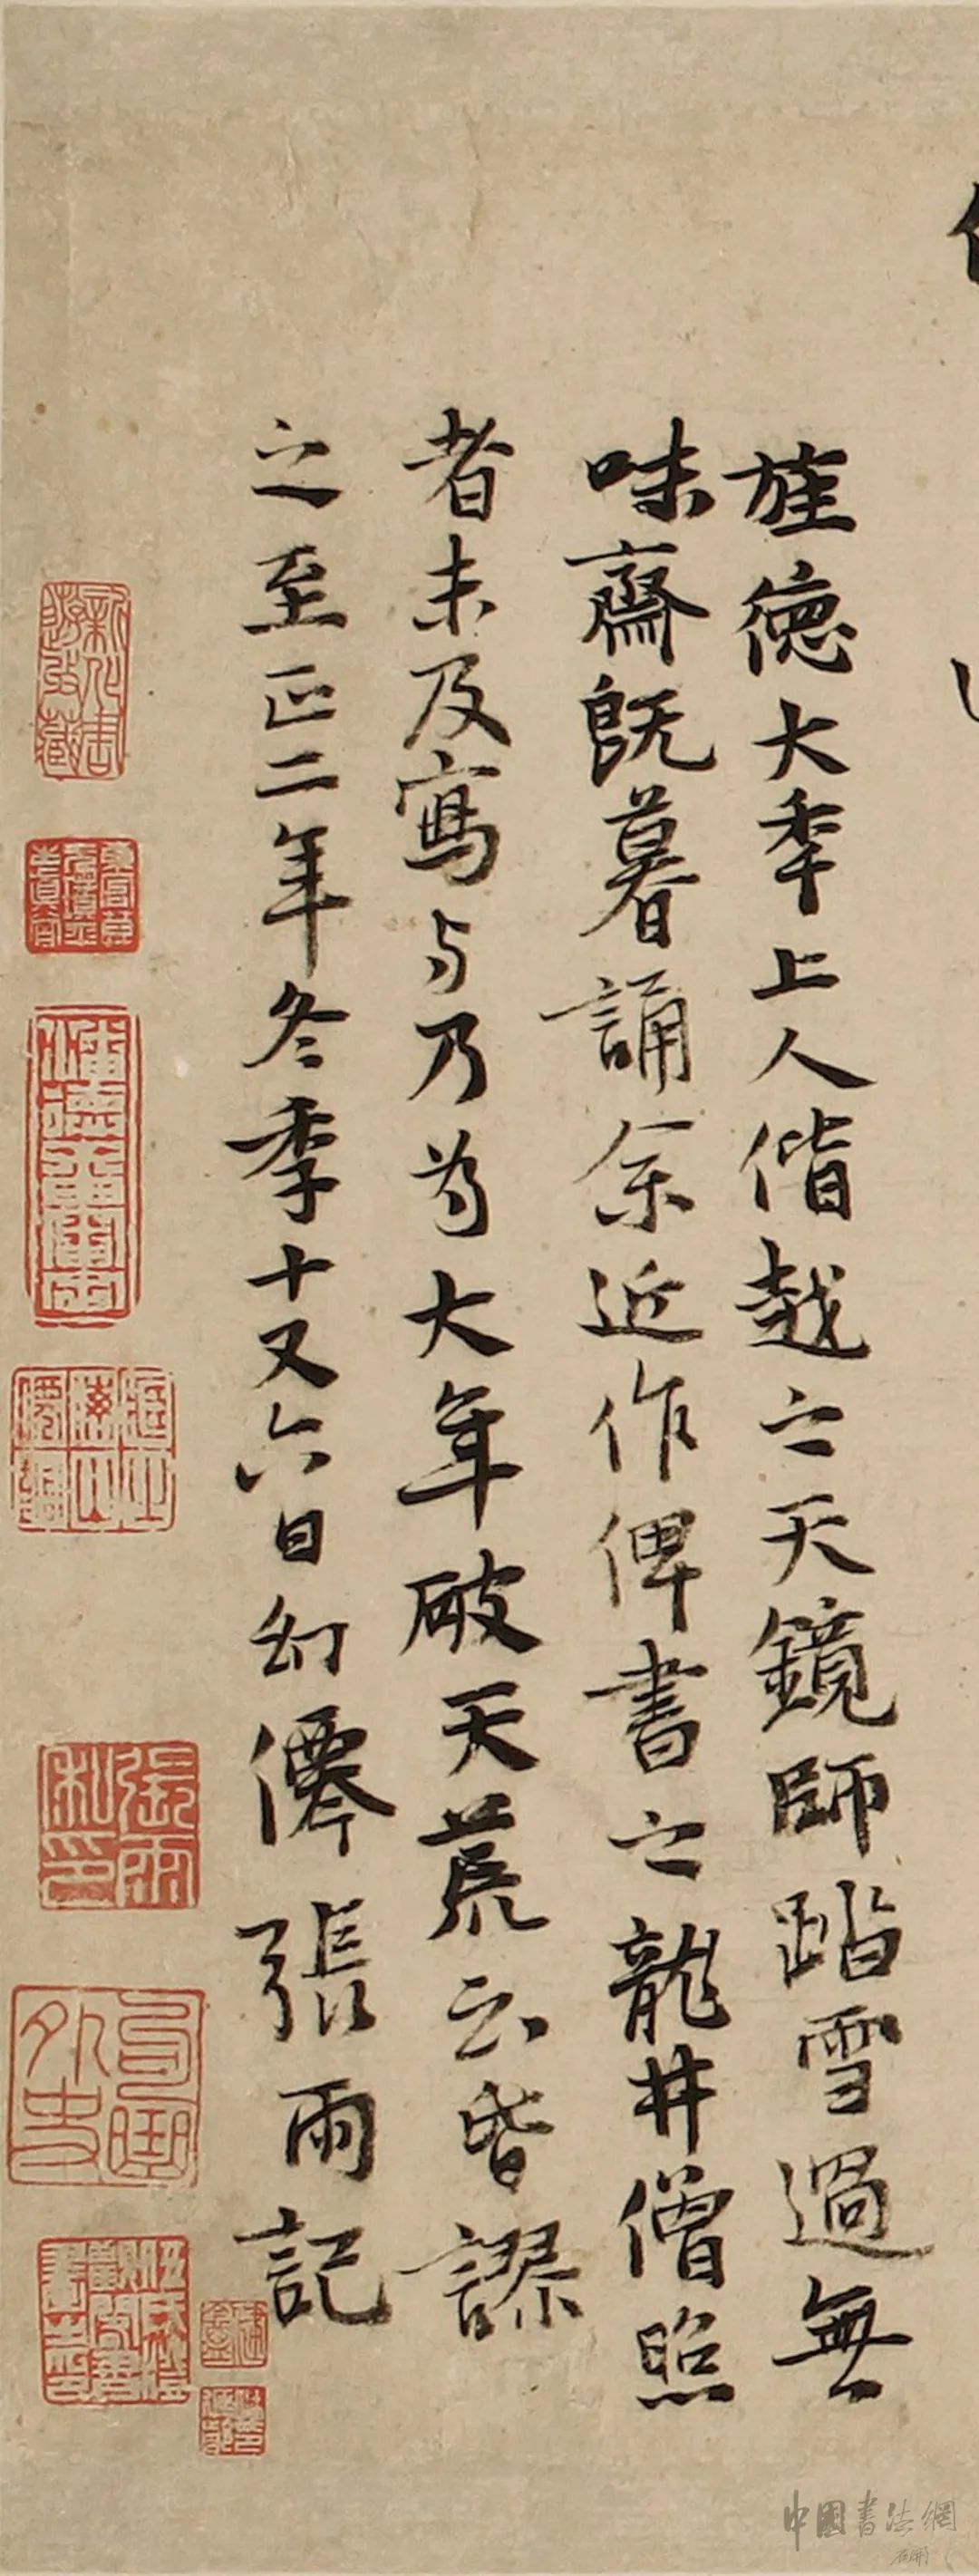 旌德大年上人偕越之天鏡師踏雪過無
味齋既暮誦余近作俾書之龍井僧照
者未及寫与乃為大年破天荒云皆謬
之至正二年冬季十又六日幻僊張雨記
張雨私印
句曲外史
中国書法網